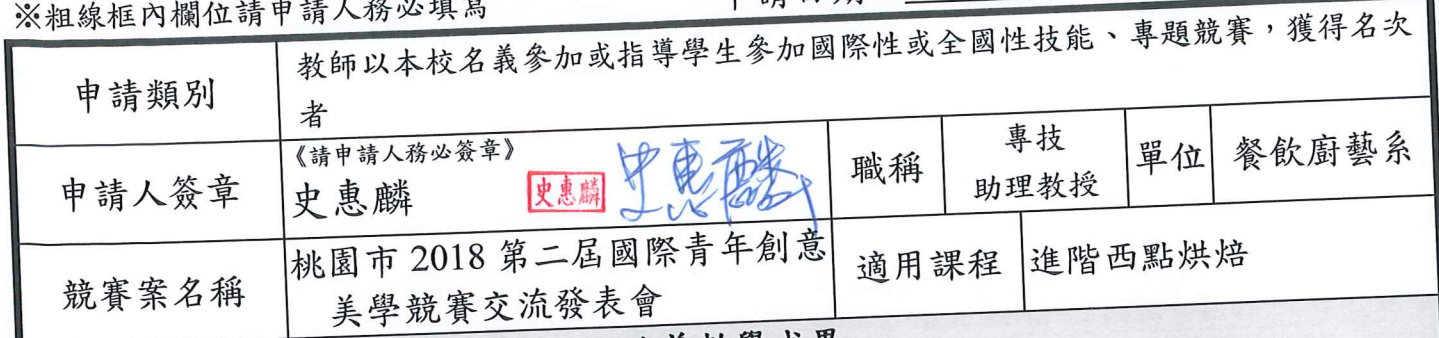 ※粗線框內欄位請申請人務必填寫
申請類別
教師以本校名義參加或指導學生參加國際性或全國性技能、專題競賽，獲得名次
者
申請人簽章
《請申請人務必簽章》
史惠麟
史惠麟
史惠麟
職稱
專技
助理教授
單位
餐飲廚藝系
競賽案名稱
桃園市 2018 第二屆國際青年創意
美學競賽交流發表會
適用課程
進階西點烘焙